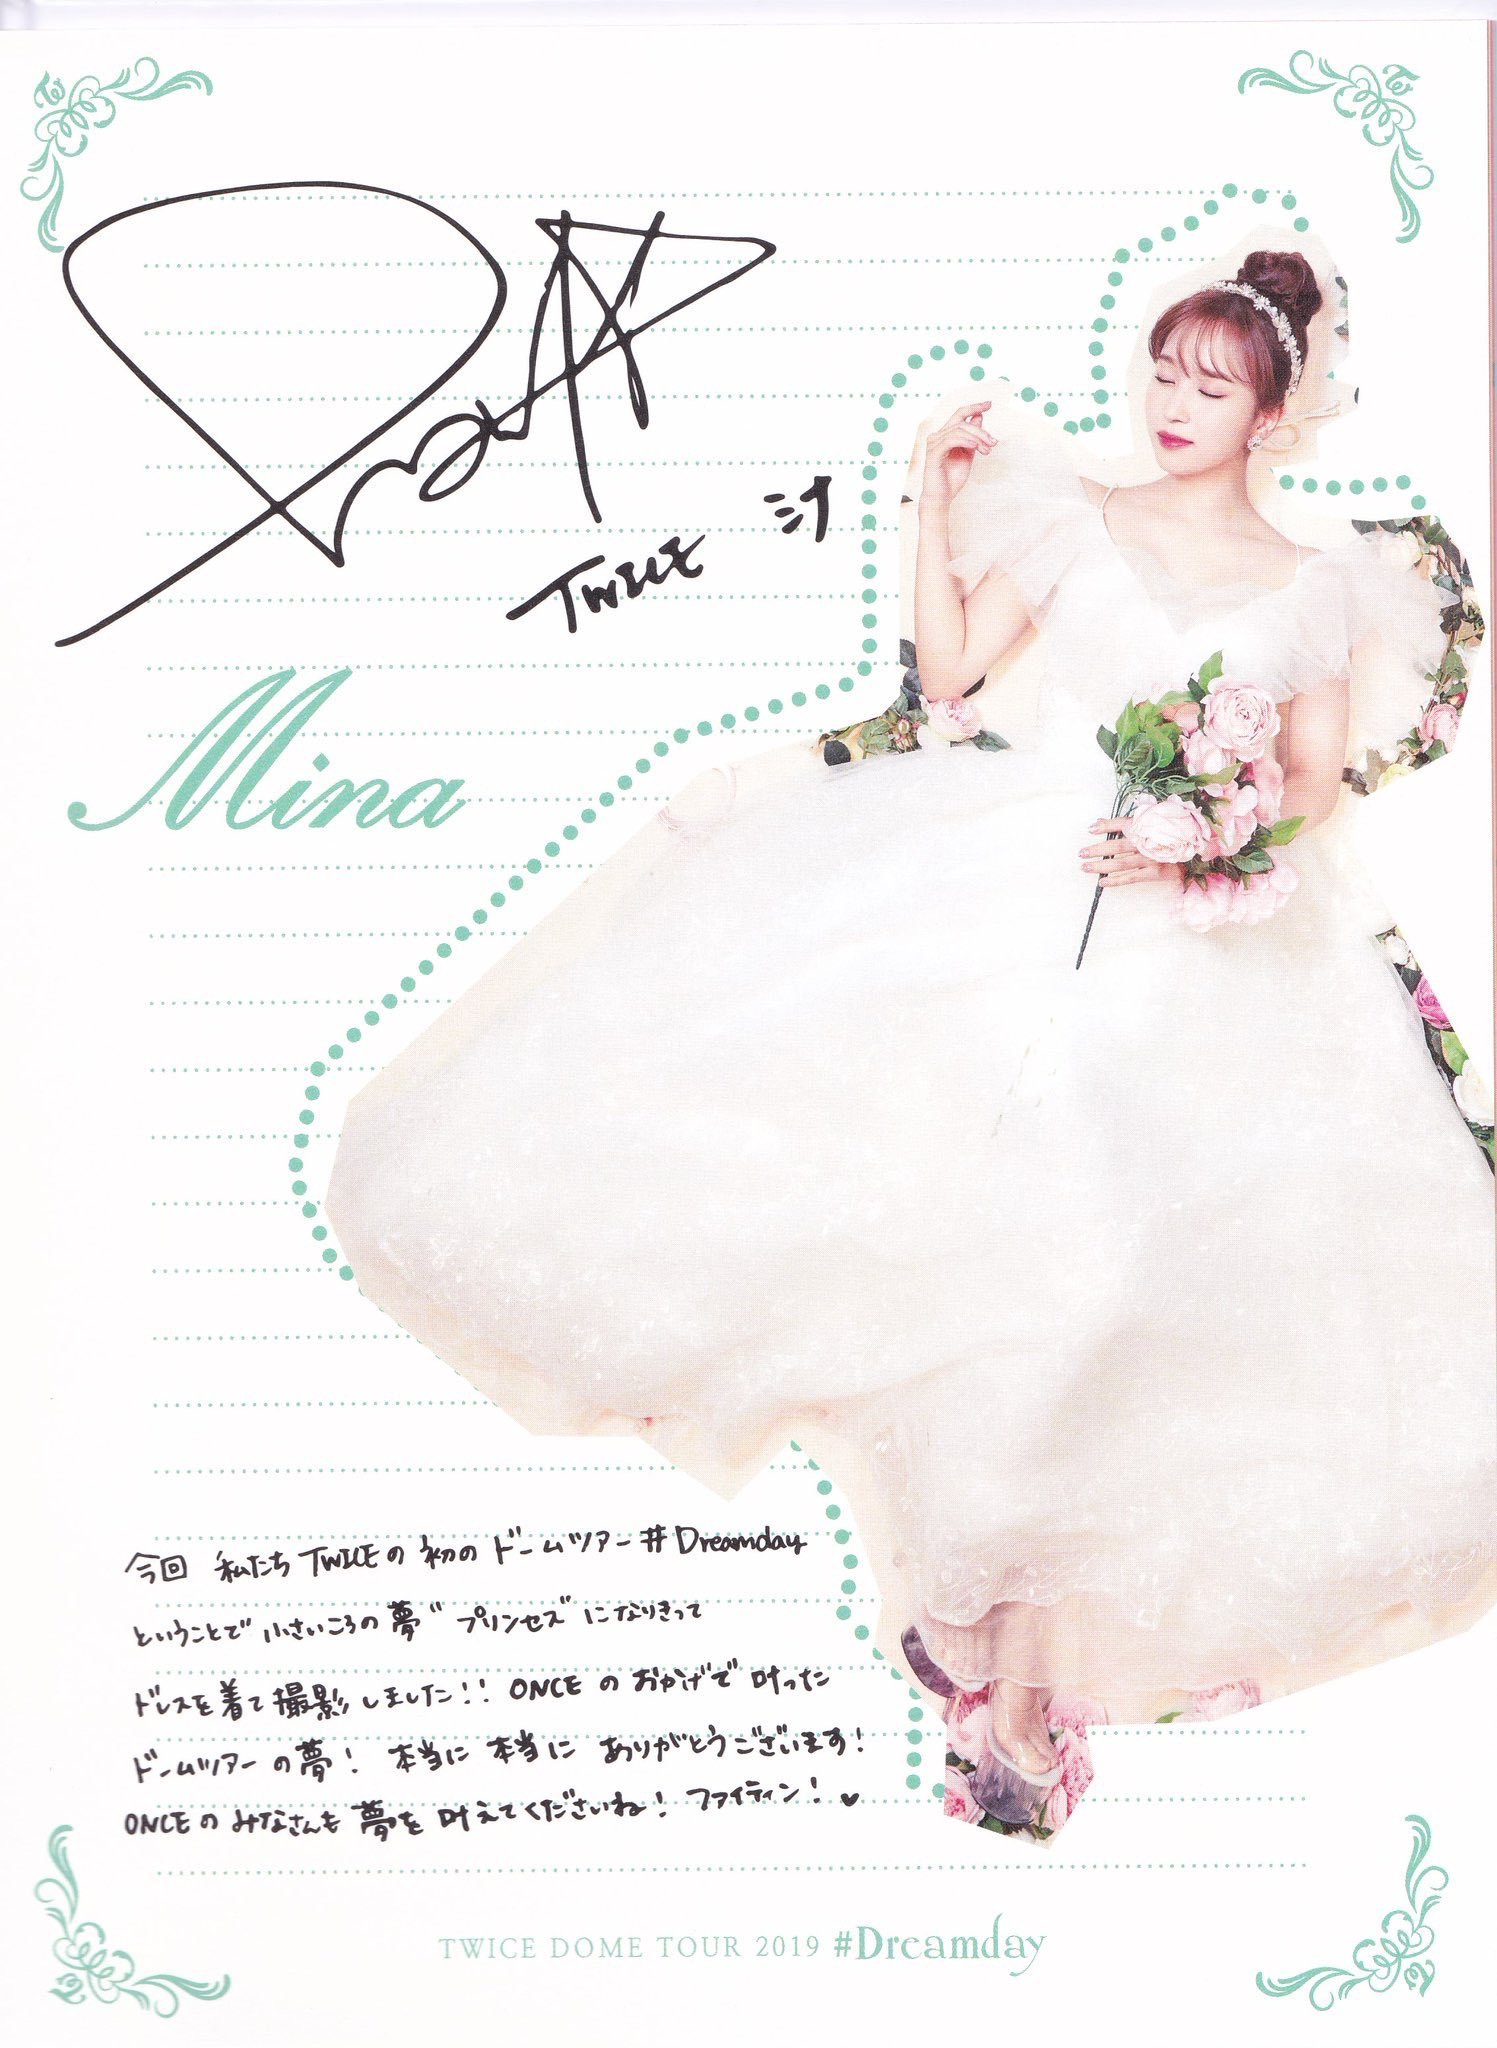 ミナ
TWICE
Mina
今回 私たち TWICEの 初の ドームツアー #Dreamday
ということで 小さいころの 夢 "プリンセス" になりきって
ドレスを 着て 撮影しました!! ONCE の おかげで 叶った
ドームツアー の 夢! 本当に 本当に ありがとうございます!
ONCEの みなさんも 夢を 叶えてくださいね! ファイティン! ♥
TWICE DOME TOUR 2019 #Dreamday